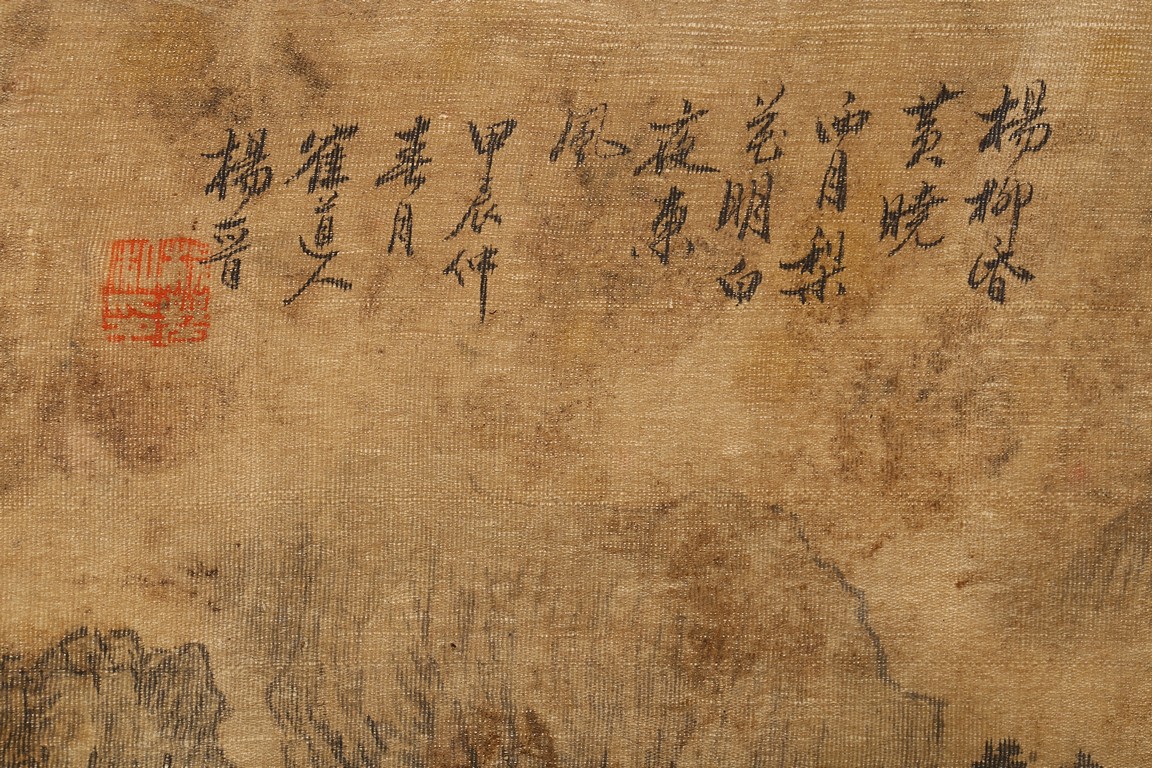 楊柳昏
黄曉
西月梨
花明白
夜東
風
甲辰仲
春月
隺道人
楊晉